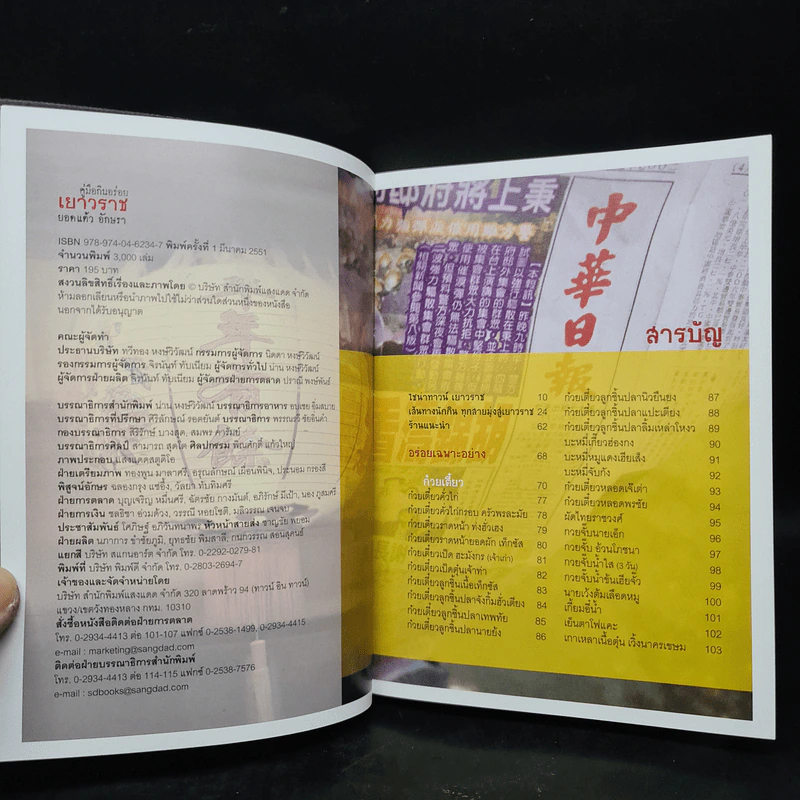 คู่มือกินอร่อย
เยาวราช
ยอดแก้ว อักษรา
ISBN 978-974-04-6234-7 พิมพ์ครั้งที่ 1 มีนาคม 2551
จำนวนพิมพ์ 3,000 เล่ม
ราคา 195 บาท
สงวนลิขสิทธิ์เรื่องและภาพโดย © บริษัท สำนักพิมพ์แสงแดด จำกัด
ห้ามลอกเลียนหรือนำภาพไปใช้ไม่ว่าส่วนใดส่วนหนึ่งของหนังสือ
นอกจากได้รับอนุญาต
คณะผู้จัดทำ
ประธานบริษัท ทวีทอง หงษ์วิวัฒน์ กรรมการผู้จัดการ นิดดา หงษ์วิวัฒน์
รองกรรมการผู้จัดการ จิรนันท์ ทับเนียม ผู้จัดการทั่วไป น่าน หงษ์วิวัฒน์
ผู้จัดการฝ่ายผลิต จิรนันท์ ทับเนียม ผู้จัดการฝ่ายการตลาด ปราณี พงษ์พันธ์
บรรณาธิการสำนักพิมพ์ น่าน หงษ์วิวัฒน์ บรรณาธิการอาหาร อบเชย อิ่มสบาย
บรรณาธิการที่ปรึกษา ศิริลักษณ์ รอตยันต์ บรรณาธิการ
กองบรรณาธิการ สิริรักษ์ บางสุด, สมพร
บรรณาธิการศิลป์ สามารถ สุดโต ศิลปกรรม พีณศักดิ์ แก้วใหญ่
ภาพประกอบ แสงแดดสตูดิโอ
ฝ่ายเตรียมภาพ ทองพูน มาลาศรี, อรุณลักษณ์ เผื่อนพินิจ, ประนอม
พิสูจน์อักษร ฉลองกรุง แซ่อึ้ง, วัลยา ทับทิมศรี
ฝ่ายการตลาด บุญเจริญ หมื่นศรี, ฉัตรชัย กางมันต์, อภิรักษ์ มีเป้า,
ฝ่ายการเงิน ชลธิชา อ่วมด้วง, วรรณี หอยโชติ, มุลิวรรณ
ประชาสัมพันธ์ โศภิษฐ์ อภิวันทนาพร หัวหน้าสายส่ง ชาญวัย พยอม
ฝ่ายผลิต นภาการ ขำชัยภูมิ, ยุทธชัย พิมสาลี, กนกวรรณ สอนสุคนธ์
แยกสี บริษัท สแกนอาร์ต จำกัด โทร. 0-2292-0279-81
พิมพ์ที่ บริษัท พิมพ์ดี จำกัด โทร. 0-2803-2694-7
เจ้าของและจัดจำหน่ายโดย
บริษัท สำนักพิมพ์แสงแดด จำกัด 320 ลาดพร้าว 94 (ทาวน์ อิน ทาวน์)
แขวง/เขตวังทองหลาง กทม. 10310
สั่งซื้อหนังสือติดต่อฝ่ายการตลาด
โทร. 0-2934-4413 ต่อ 101-107 แฟกซ์ 0-2538-1499, 0-2934-4415
e-mail : marketing@sangdad.com
ติดต่อฝ่ายบรรณาธิการสำนักพิมพ์
โทร. 0-2934-4413 ต่อ 114-115 แฟกซ์ 0-2538-7576
e-mail : sdbooks@sangdad.com
府將上秉
中華日報
สารบัญ
ไชน่าทาวน์ เยาวราช 10
เส้นทางนักกิน ทุกสายมุ่งสู่เยาวราช 24
ร้านแนะนำ 62
อร่อยเฉพาะอย่าง 68
ก๋วยเตี๋ยว 70
ก๋วยเตี๋ยวคั่วไก่ 77
ก๋วยเตี๋ยวคั่วไก่กรอบ ครัวพรละมัย 78
ก๋วยเตี๋ยวราดหน้า ทั่งฮั่วเฮง 79
ก๋วยเตี๋ยวราดหน้ายอดผัก เท็กซัส 80
ก๋วยเตี๋ยวเป็ด ฮะมังกร (เจ้าเก่า) 81
ก๋วยเตี๋ยวเป็ดตุ๋นเจ้าท่า 82
ก๋วยเตี๋ยวลูกชิ้นเนื้อเท็กซัส 83
ก๋วยเตี๋ยวลูกชิ้นปลาจังกิ้มฮั่วเตียง 84
ก๋วยเตี๋ยวลูกชิ้นปลาเทพทัย 85
ก๋วยเตี๋ยวลูกชิ้นปลานายย้ง 86
ก๋วยเตี๋ยวลูกชิ้นปลานิวยีนย้ง 87
ก๋วยเตี๋ยวลูกชิ้นปลาแปะเตียง 88
ก๋วยเตี๋ยวลูกชิ้นปลาลิ้มเหล่าโหงว 89
บะหมี่เกี๊ยวฮ่องกง 90
บะหมี่หมูแดงเฮียเส็ง 91
บะหมี่จับกัง 92
ก๋วยเตี๋ยวหลอดเจ๊เต่า 93
ก๋วยเตี๋ยวหลอดพรชัย 94
ผัดไทยราชวงศ์ 95
ก๋วยจั๊บนายเอ็ก 96
ก๋วยจั๊บ อ้วนโภชนา 97
ก๋วยจั๊บน้ำใส (3 วัน) 98
ก๋วยจั๊บน้ำข้นเฮียจั๊ว 99
นายเว้งต้มเลือดหมู 100
เกี้ยมอี๋น้ำ 101
เย็นตาโฟแคะ 102
เกาเหลาเนื้อตุ๋น เวิ้งนาครเขษม 103